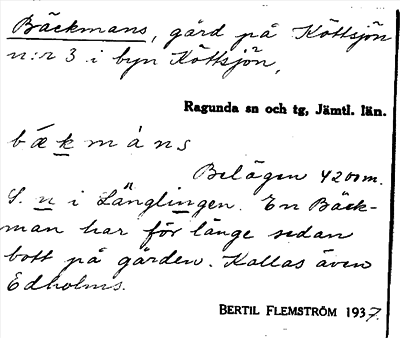 Bäckmans, gård på Köttsjön
n:r 3 i byn Köttsjön,
Ragunda sn och tg, Jämtl. län.
b æ k m à n s
Belägen 4200m.
S. n i Länglingen. En Bäck-
man har för länge sedan
bott på gården. Kallas även
Edholms.
BERTIL FLEMSTRÖM 1937.